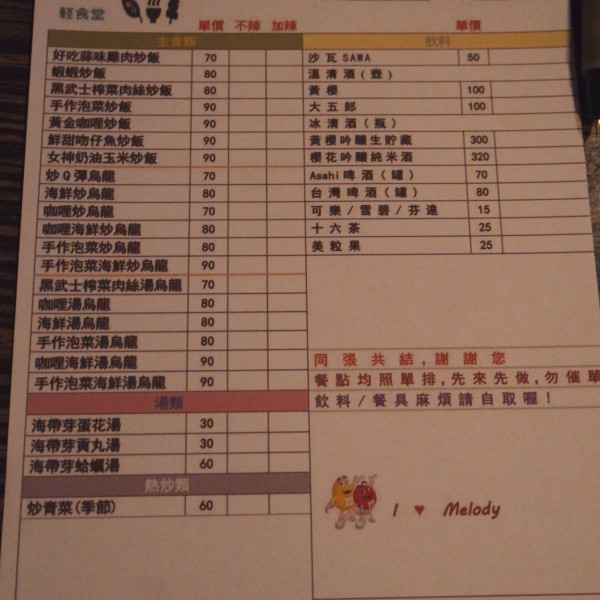 輕食堂
單價 不辣 加辣
主食類
好吃蒜味雞肉炒飯 70
蝦蝦炒飯 80
黑武士榨菜肉絲炒飯 80
手作泡菜炒飯 90
黃金咖哩炒飯 90
鮮甜吻仔魚炒飯 90
女神奶油玉米炒飯 90
炒Q彈烏龍 70
海鮮炒烏龍 80
咖哩炒烏龍 70
咖哩海鮮炒烏龍 80
手作泡菜炒烏龍 80
手作泡菜海鮮炒烏龍 90
黑武士榨菜肉絲湯烏龍 70
咖哩湯烏龍 80
海鮮湯烏龍 80
手作泡菜湯烏龍 80
咖哩海鮮湯烏龍 90
手作泡菜海鮮湯烏龍 90
湯類
海帶芽蛋花湯 30
海帶芽貢丸湯 30
海帶芽蛤蠣湯 60
熱炒類
炒青菜(季節) 60
單價
飲料
沙瓦SAWA 50
溫清酒(壺)
黃櫻 100
大五郎 100
冰清酒(瓶)
黃櫻吟釀生貯藏 300
櫻花吟釀純米酒 320
Asahi啤酒(罐) 70
台灣啤酒(罐) 80
可樂/雪碧/芬達 15
十六茶 25
美粒果 25
同張共結,謝謝您
餐點均照單排,先來先做,勿催單
飲料/餐具麻煩請自取喔!
I ♥ Melody